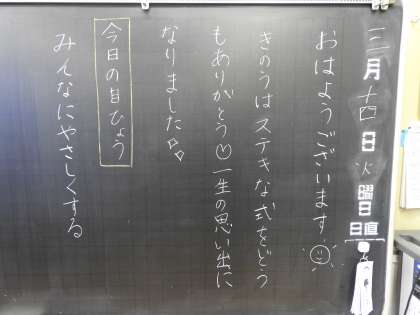 三月十四日火曜日
日直
おはようございます
きのうはステキな式をどう
もありがとう 一生の思い出に
なりました
今日の目ひょう
みんなにやさしくする